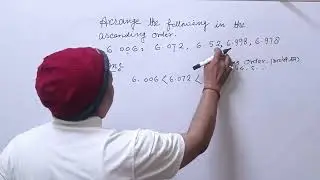 Arrange the following in the
ascending order.
6.006, 6.072, 6.52, 6.998, 6.978
order.
6.006 < 6.072 <